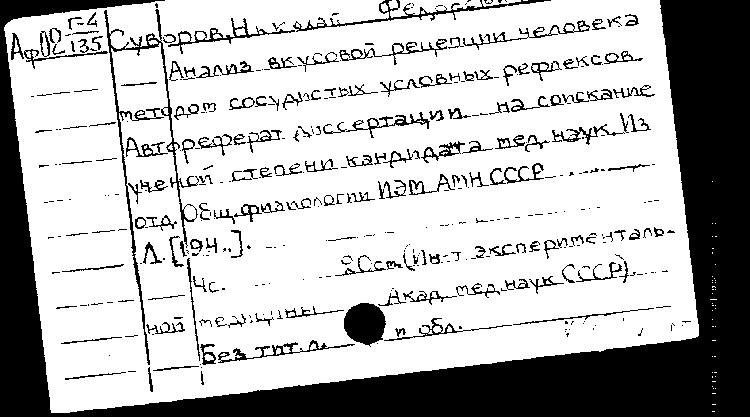 Аф02 Г-4/135 Суворов, Николай Федорович
Анализ вкусовой рецепции человека
методом сосудистых условных рефлексов.
Автореферат диссертации на соискание
ученой степени кандидата мед. наук. Из
отд. Общ. физиологии ИЭМ АМН СССР
Л. [194..].
4с. 20см (Ин-т эксперименталь-
ной медицины Акад. мед. наук СССР).
Без тит. л. и обл.